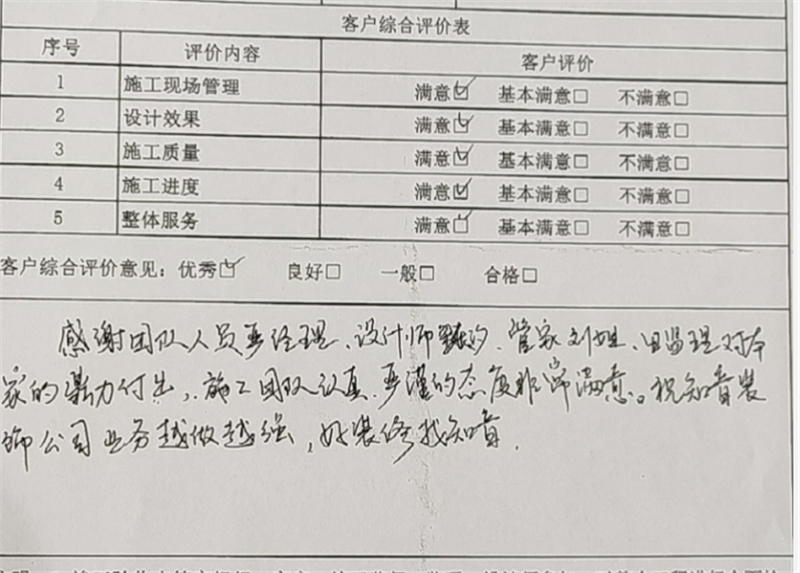 客户综合评价表
序号 评价内容 客户评价
1 施工现场管理 满意☑ 基本满意□ 不满意□
2 设计效果 满意☑ 基本满意□ 不满意□
3 施工质量 满意☑ 基本满意□ 不满意□
4 施工进度 满意☑ 基本满意□ 不满意□
5 整体服务 满意☑ 基本满意□ 不满意□
客户综合评价意见：优秀☑ 良好□ 一般□ 合格□
感谢团队人员严经理、设计师、管家刘姐、监理对本
家的鼎力付出，施工团队认真、严谨的态度非常满意。祝知音装
饰公司业务越做越强，好装修找知音.